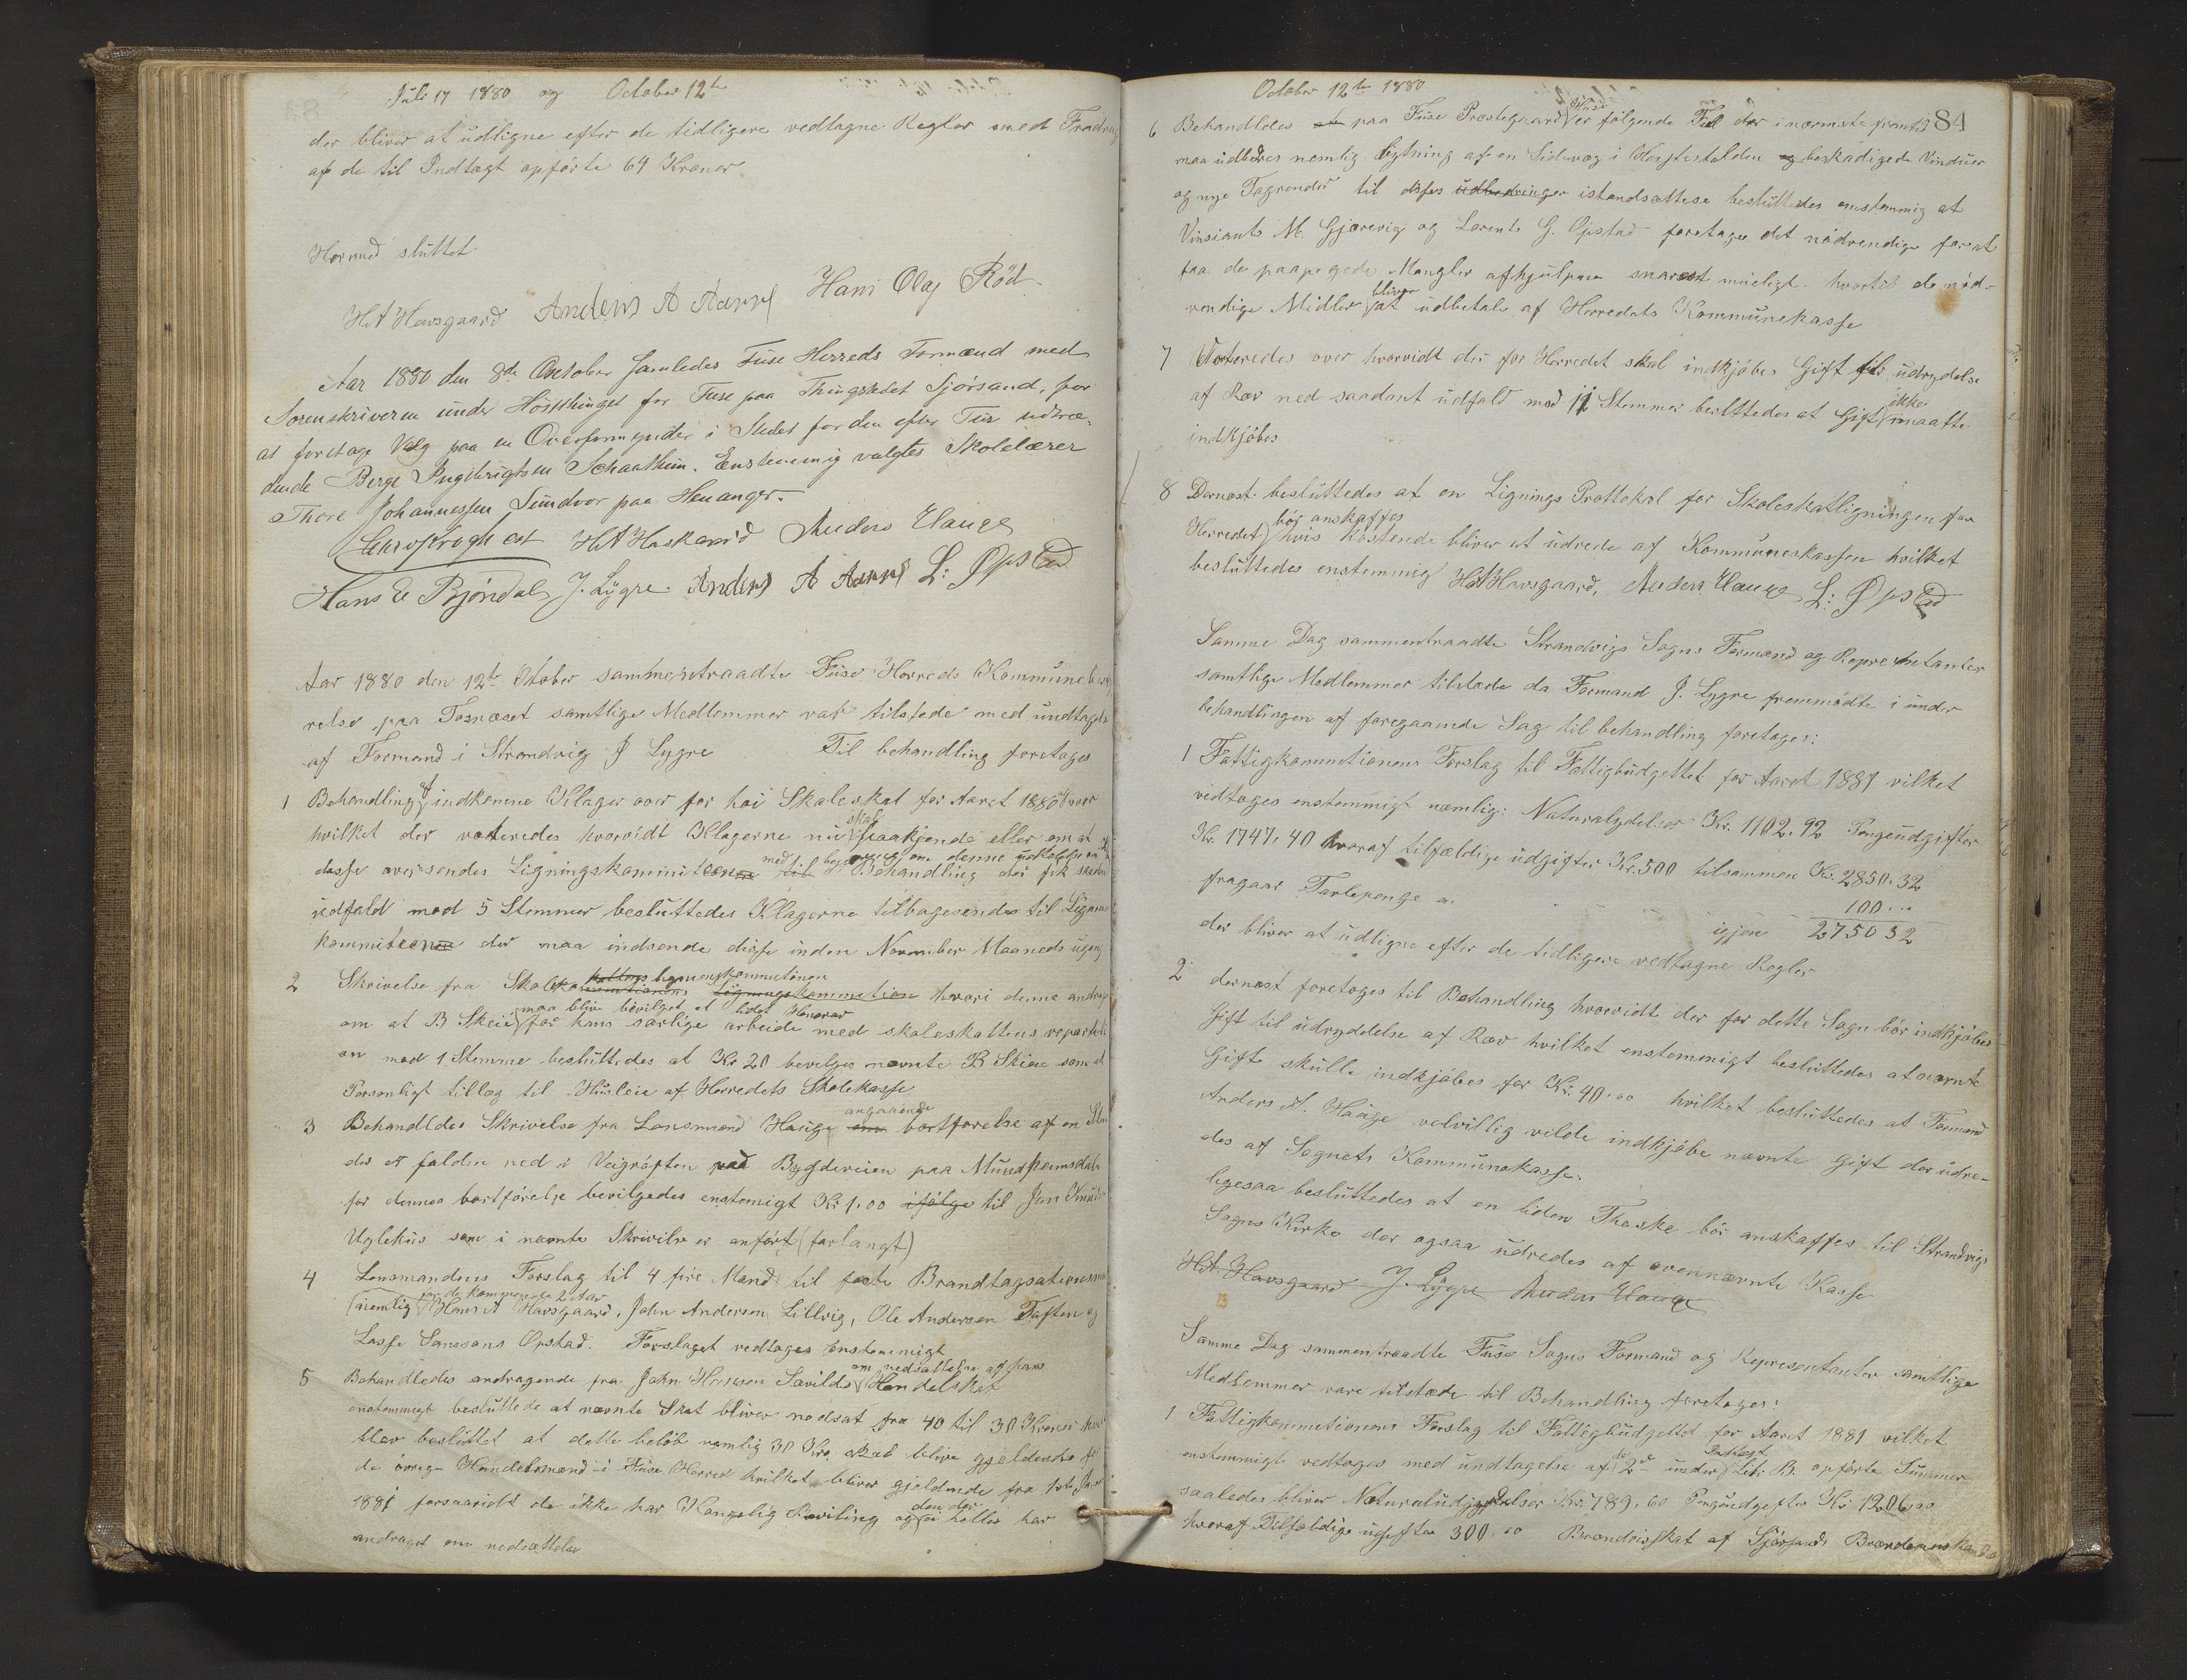 Juli 17 1880 og October 12te
der bliver at udligne efter de tidligere vedtagne Regler med Fradrag
af de til Indtægt opførte 64 Kroner
Hermed sluttet
HA Havsgaard Anders A Aarre Hans Olaj Röd
Aar 1880 den 8de October samledes Fuse Herreds Formænd med
Sorenskriveren under Høstthinget for Fuse paa Thingstedet Sjörsand, for
at foretage Valg paa en Overformynder i Stedet for den efter Tur udtræ-
dende Berge Ingebrigtsen Schaathun. Enstemmig valgtes Skolelærer
Thore Johannessen Sundvor paa Henanger.
HA Haskaard Anders Hauge
Hans E Bjöndal J. Lygre. Anders A Aarre L: Opstad
Aar 1880 den 12te Otober sammentraadte Fuse Herreds Kommunebesty
relse paa Tosnæset samtlige Medlemmer var tilstede med undtagelse
af Formand i Strandvig J Lygre Til behandling foretages
1 Behandling af indkomne Klager over for høi Skoleskat for Aaret 1880 over
hvilket der voteredes hvorvidt Klagerne nu skal paakjende eller om at
desse oversendes Ligningskommiteen med begjæring om denne udtalelse Behandling der fik saadan
udfald med 5 Stemmer besluttedes Klagerne tilbagesendes til Lignings
kommiteen der maa indsende disse inden November Maaneds ugang
2 Skrivelse fra Skoleskattens ligningskommitionen hvori denne andrager
om at B Skeie maa blive bevilget et lidet Honorar for hans særlige arbeide med skoleskattens reparti
on med 1 Stemme besluttedes at Kr 20 bevilges nævnte B Skeie som et
Personligt tillæg til Husleie af Herredets Skolekasse
3 Behandldes Skrivelse fra Lensmand Hauge angaaende bortførelse af en Sten
der er falden ned i Veigrøften ved Bygdeveien paa Mundheimsdalen
for dennes bortførelse bevilgedes enstemigt Kr 1.00 ifölge til Jan Knuds
Uglehus som i nævnte Skrivilse er anført (forlangt)
4 Lensmandens Forslag til 4 fire Mænd til faste Brandtagsationsmænd
nemlig for de kommende 2 Aar Hans A Havsgaard, John Andersen Lillevig, Ole Andersen Tuften og
Lasse Opstad. Forslaget vedtoges Enstemmigt
5 Behandledes andragende fra John Hansen Sævilde om nedsættelse af hans Handelskat
enstemmigt besluttede at nævnte Skat bliver nedsat fra 40 til 30 Kroner
blev besluttet at dette beløb nemlig 30 Kro skal blive gjeldende for
de øvrege Handelsmænd i Fuse Herred hvilket bliver gjeldende fra 1ste Jan
1881 forsaavidt de ikke har Kongelig Beviling og den der ei heller har
andraget om nedsættelse
October 12te 1880
84
6 Behandledes paa Fuse Præstegaard Huse er følgende Feil der i nærmste fremtid
maa udbedres nemlig Bytning af en Sidevæg i Hestestalden og beskadigede Vinduer
og nye Tagrender til disses udbedringer istandsættese besluttedes enstemmig at
Vinsiants M. Gjærevig og Lorents G. Opstad foretager det nödvendige for at
faa de paapegede Mangler afhjulpne snarest mueligt. hvortil de nöd-
vendige Midler bliver at udbetale af Herredets Kommunekasse
7 Voteredes over hvorvidt der for Herredet skal indkjöbes Gift til udrydelse
af Ræv ned saadant udfald med 11 Stemmer besluttedes at Gift ikke maatte
indkjöbes
8 Dernæst besluttedes at en Lignings Prottokol for Skoleskatligningen for
Herredet bör anskaffes hvis Kostende bliver at udrede af Kommuneskassen hvilket
besluttedes enstemmig HA Havsgaard, Anders Hauge L: Opstad
Samme Dag sammentraadte Strandvigs Sogns Formænd og Representanter
samtlige Medlemmer tilstæde da Formand J. Lygre fremmödte i under
behandlingen af foregaaende Sag til behandling foretages:
1 Fattigkommitionens Forslag til Fattigbudgettet for Aaret 1881 vilket
vidtages enstemmigt nemlig: Naturalydelser Kr. 1102.92 Pengeudgifter
Kr. 1747.40 hvoraf tilfældige udgifter Kr. 500 tilsammen Kr. 2850.32
fragaar Tærlepenge a. 100...
igjen 2750 32
der bliver at udligne efter de tidligere vedtagne Regler
2 dernæst foretages til Behandling hvorvidt der for dette Sogn bör indkjöbes
Gift til udryddelse af Ræv hvilket enstemmigt besluttedes at nævnte
Gift skulle indkjöbes for Kr. 40.00 hvilket besluttedes at Formand
Anders A. Hauge velvillig vilde indkjöbe nævnte Gift der udre-
des af Sognets Kommunekasse.
ligesaa besluttedes at en liden Thaske bör anskaffes til Strandvigs
Sogns Kirke der ogsaa udredes af ovennævnte Kasse
HA Havsgaard J. Lygre Anders Hauge
Samme Dag sammentraadte Fuse Sogns Formænd og Representanter samtlige
Medlemmer vare tilstæde til Behandling foretages:
1 Fattigkommitionens Forslag til Fattigbudgettet for Aaret 1881 vilket
enstemmigt vedtages med undtagelse af de 2de under Indtægt Litr B. opførte Summer
saaledes bliver Naturaludgydelser Kr. 789,60 Pengeudgefter Kr 1206.00
hvoraf Tilfældige udgefter 300.00 Brændevisskat af Sjörsands Brændevinshandel